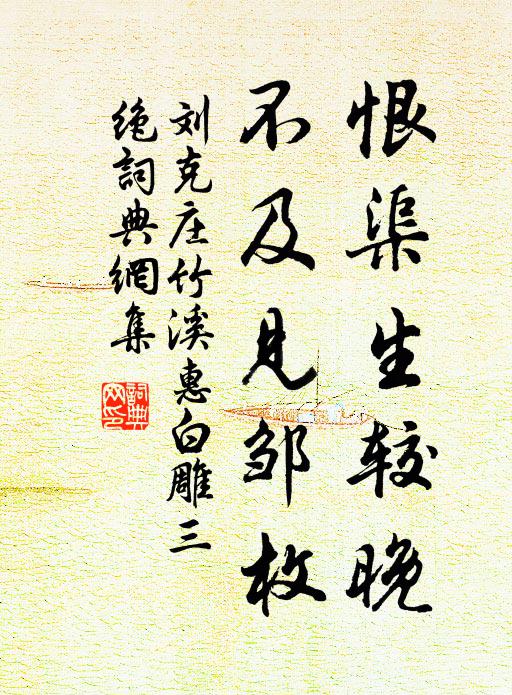 恨渠生较晚
不及见邹枚
刘克庄竹溪惠白雕三
绝词典網集
詞典
网印